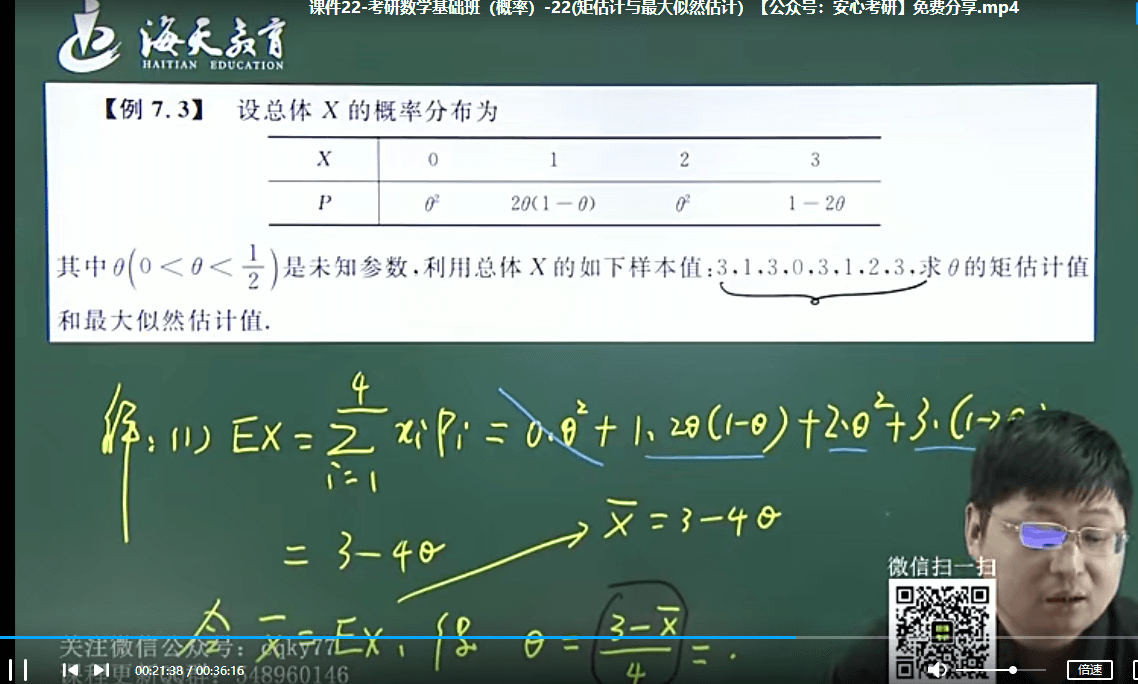 课件22-考研数学基础班（概率）-22(矩估计与最大似然估计) 【公众号：安心考研】免费分享.mp4
海天教育
HAITIAN EDUCATION
【例 7.3】 设总体 X 的概率分布为
X 0 1 2 3
P θ² 2θ(1-θ) θ² 1-2θ
其中θ(0<θ<1/2)是未知参数,利用总体 X 的如下样本值:3,1,3,0,3,1,2,3,求 θ 的矩估计值
和最大似然估计值.
解:(1) EX = ∑_{i=1}^{4} xᵢPᵢ = 0·θ² + 1·2θ(1-θ) + 2·θ² + 3·(1-2
= 3-4θ
X̄ = 3-4θ
令 X̄ = EX, 得 θ = (3-X̄)/4 = .
微信扫一扫
关注微信公众号:
00:21:38 / 00:36:16
648960146
倍速